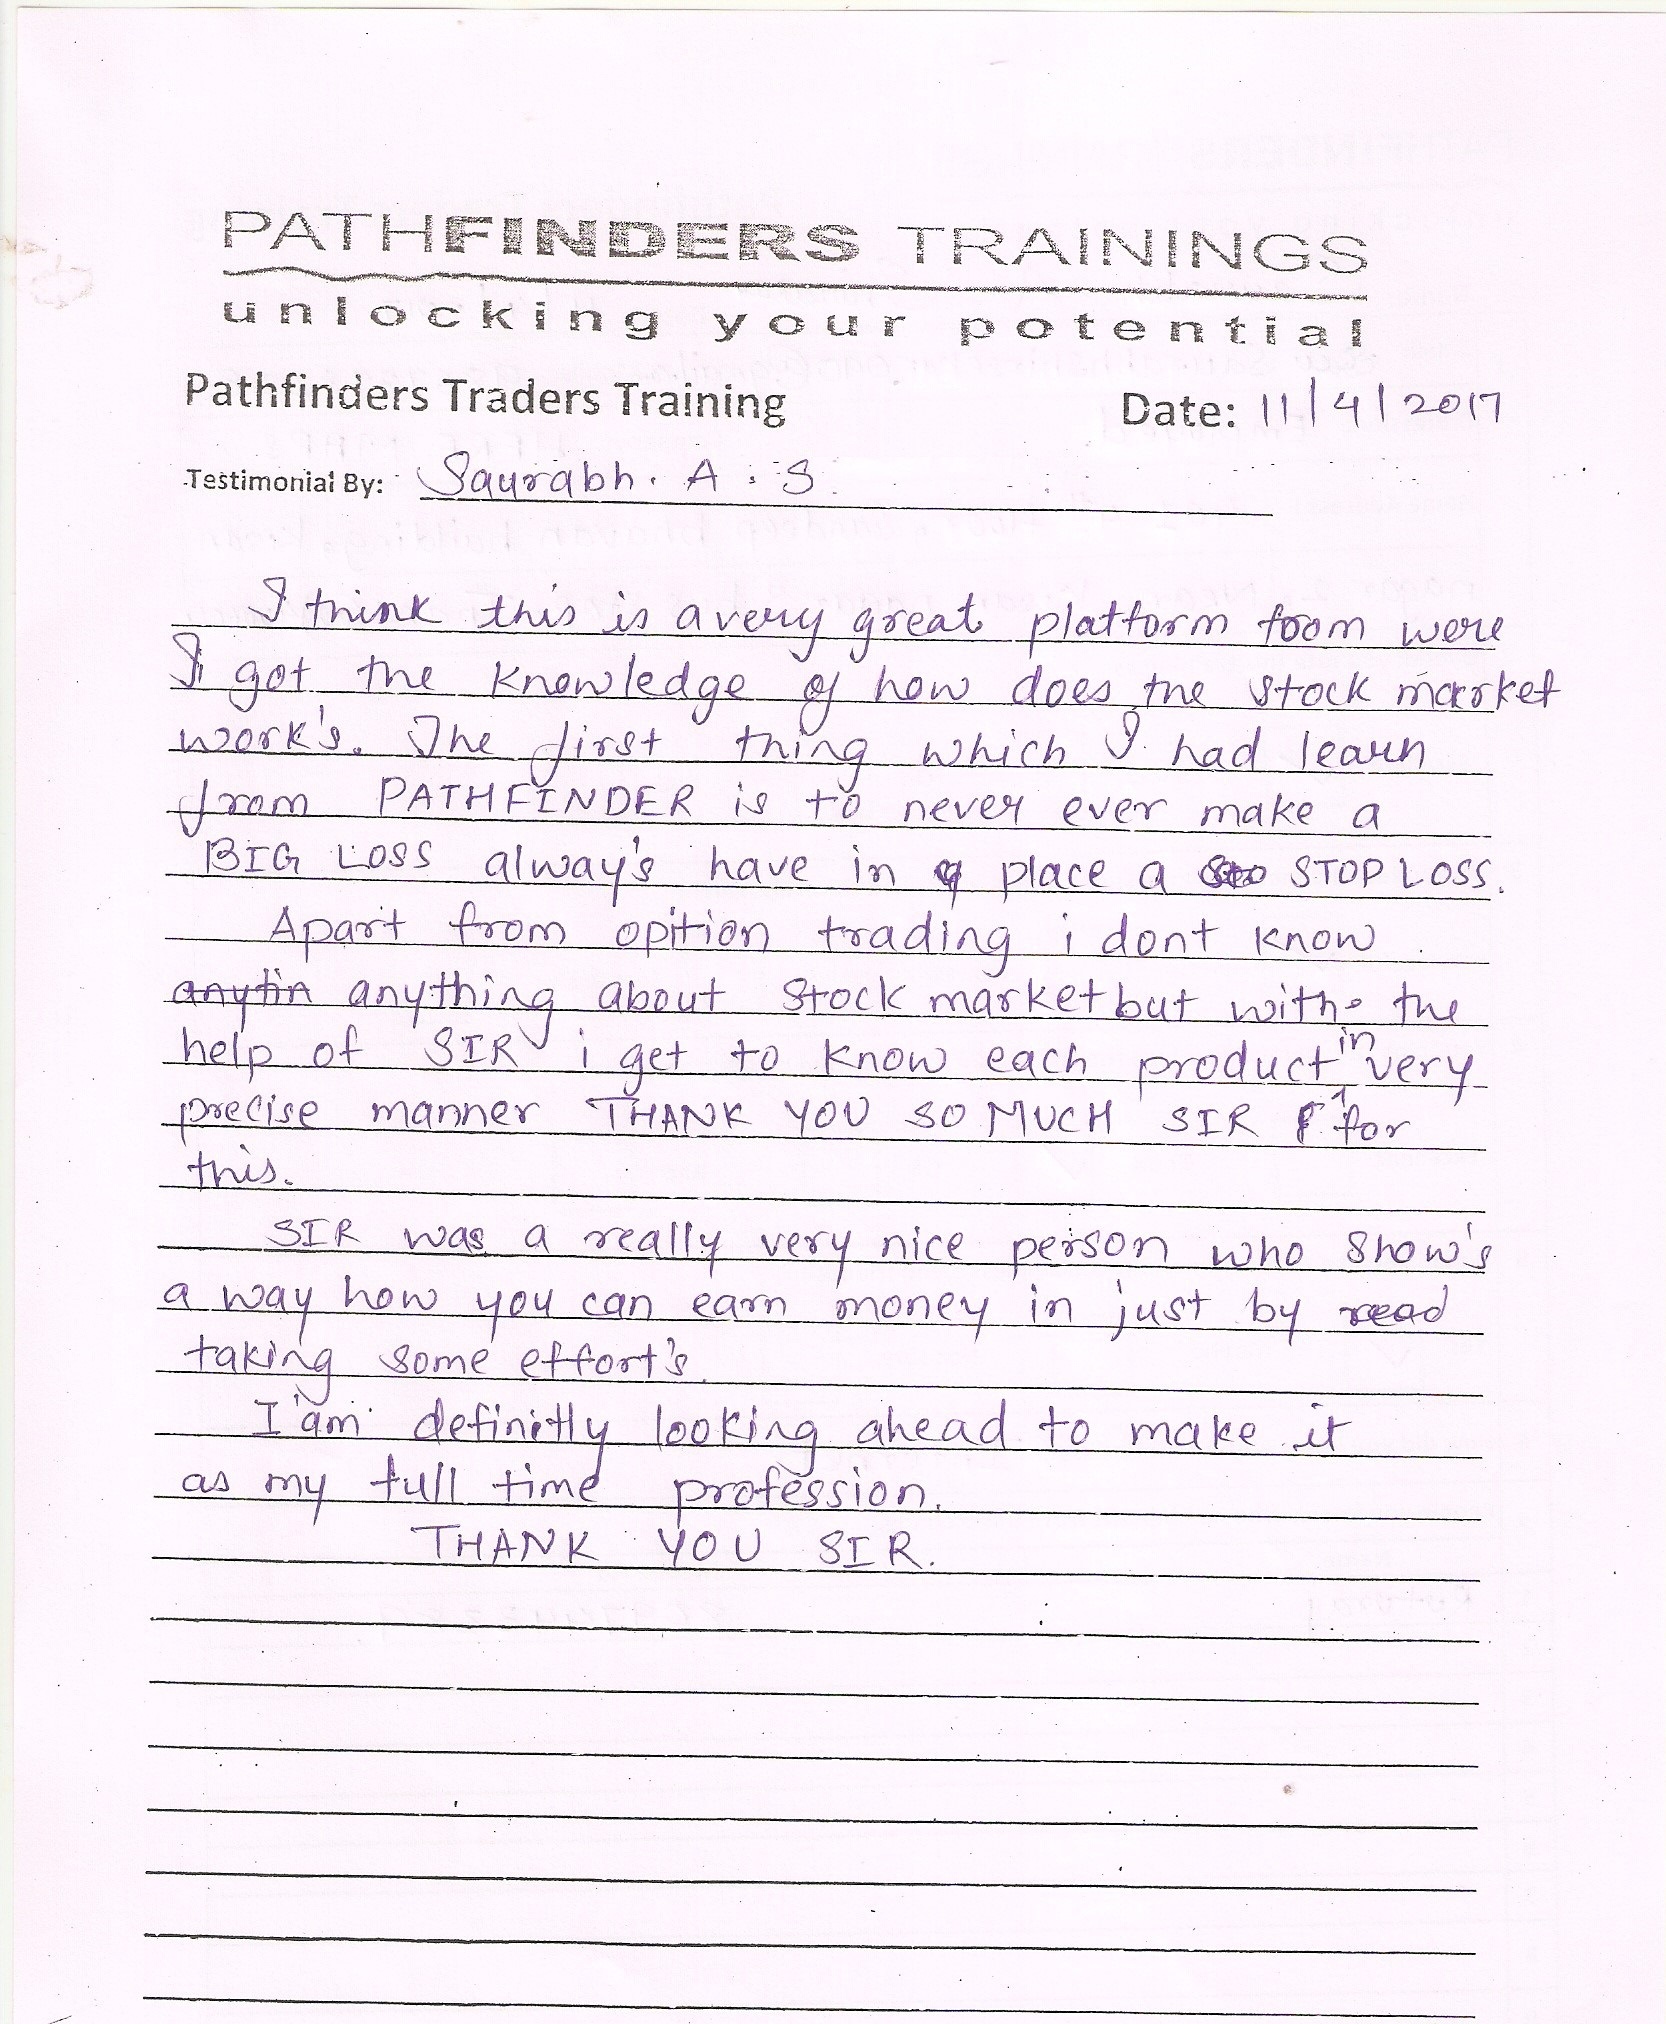 PATHFINDERS TRAININGS
unlocking your potential
Pathfinders Traders Training
Date: 11/4/2017
Testimonial By: Saurabh. A. S.
I think this is a very great platform from were
I got the knowledge of how does the stock market
work's. The first thing which I had learn
from PATHFINDER is to never ever make a
BIG LOSS alway's have in place a STOP LOSS.
Apart from opition trading i dont know
anytin anything about stock market but with the
help of SIR i get to know each product in very
precise manner THANK YOU SO MUCH SIR for
this.
SIR was a really very nice person who show's
a way how you can earn money in just by read
taking some effort's.
I'am definitly looking ahead to make it
as my full time profession.
THANK YOU SIR.